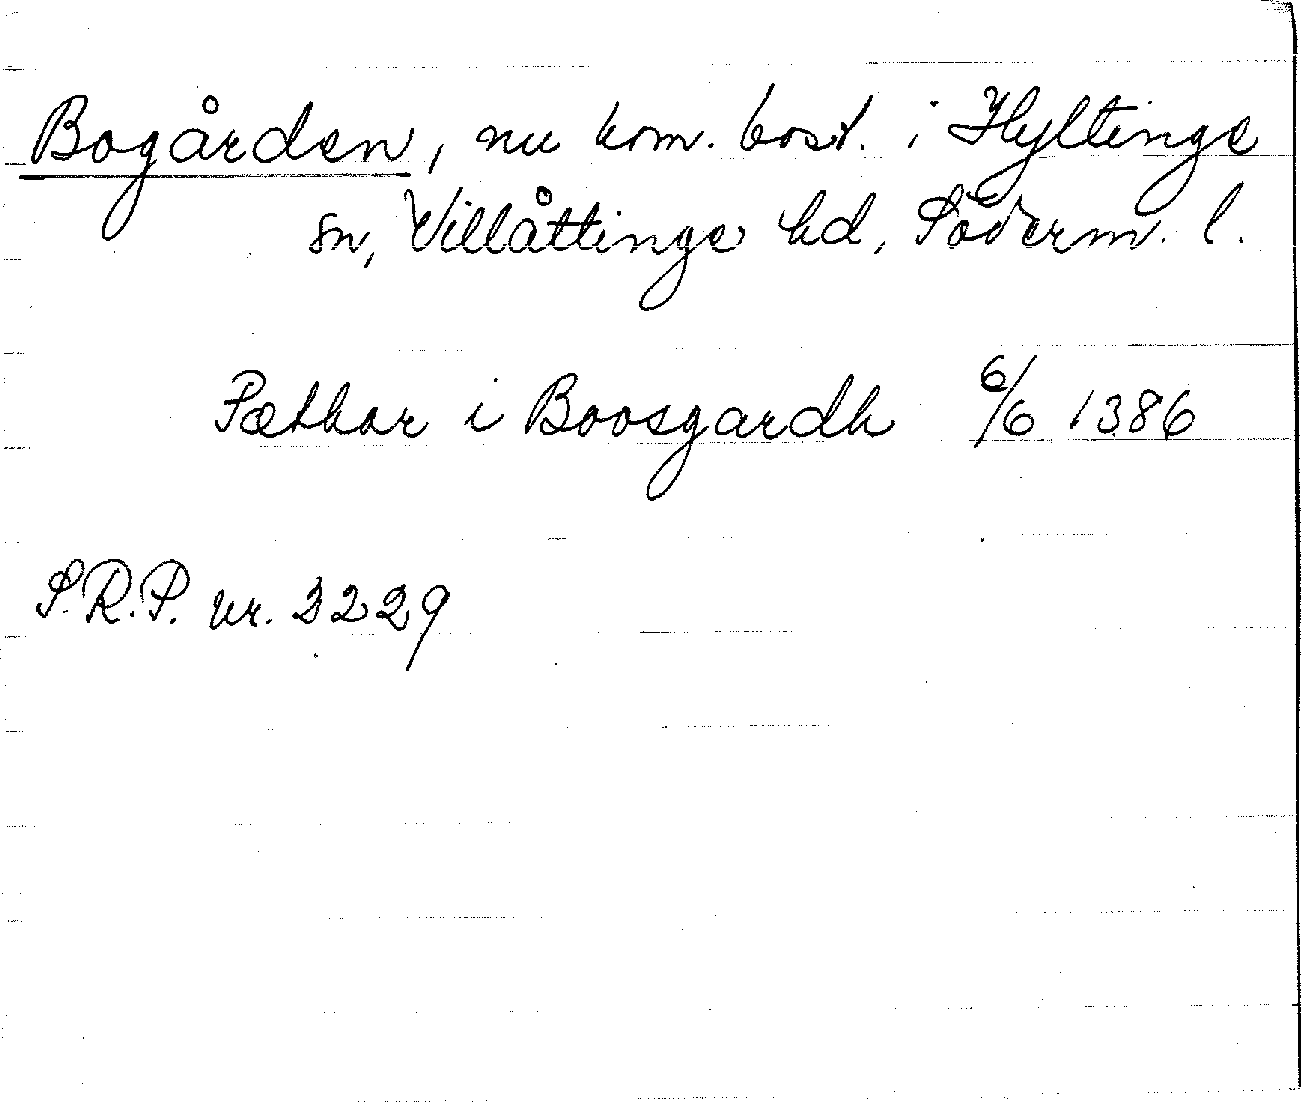 Bogården, nu kom. bost. i Hyltinge
sn, Villåttinge hd, Söderm. l.
Pæthar i Boosgardh 6/6 1386
S.R.P. nr. 3229